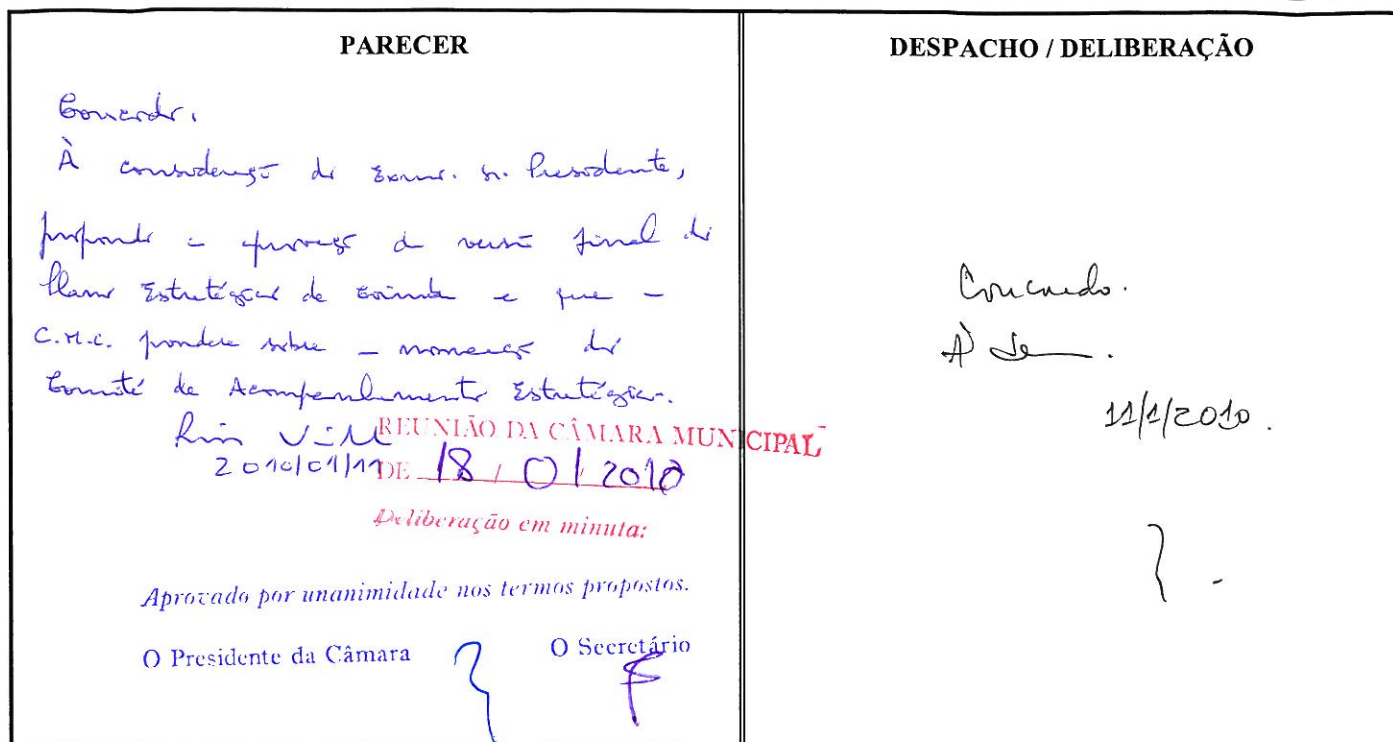 PARECER
Concordo.
À consideração do Exmo. Sr. Presidente,
propondo a aprovação da versão final do
Plano Estratégico de Coimbra e que a
C.M.C. pondere sobre a nomeação do
Comité de Acompanhamento Estratégico.
2010/01/11
REUNIÃO DA CÂMARA MUNICIPAL
DE 18 / 01 2010
Deliberação em minuta:
Aprovado por unanimidade nos termos propostos.
O Presidente da Câmara O Secretário
DESPACHO / DELIBERAÇÃO
Concordo.
À
11/1/2010.